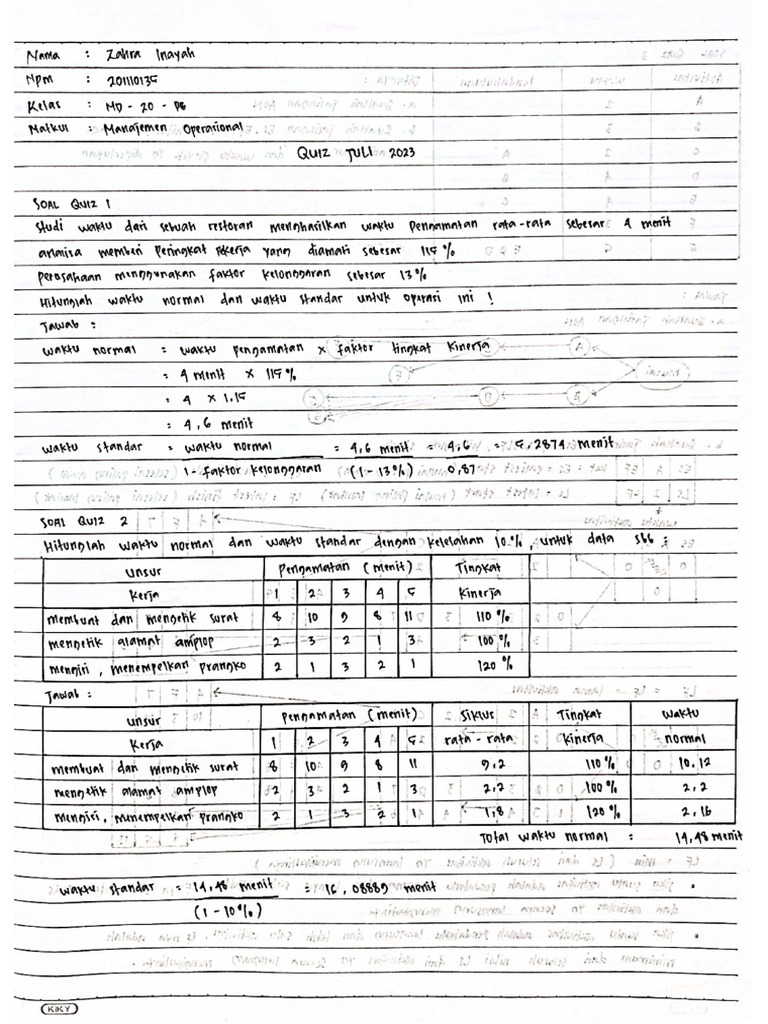 Nama : Zahra Inayah
Npm : 201110135
Kelas : MD - 20 - P6
Matkul : Manajemen Operasional
QUIZ JULI 2023
SOAL QUIZ 1
Studi waktu dari sebuah restoran menghasilkan waktu pengamatan rata-rata sebesar 4 menit
analisa memberi peringkat pekerja yang diamati sebesar 115 %
perusahaan menggunakan faktor kelonggaran sebesar 13 %
Hitunglah waktu normal dan waktu standar untuk operasi ini !
Jawab :
Waktu normal = waktu pengamatan x faktor tingkat kinerja
= 4 menit x 115 %
= 4 x 1.15
= 4,6 menit
Waktu standar = waktu normal = 4,6 menit = 4,6 = 5,2874 menit
1 - faktor kelonggaran (1 - 13 %) 0,87
SOAL QUIZ 2
Hitunglah waktu normal dan waktu standar dengan kelelahan 10 %, untuk data sbb :
Unsur Pengamatan (menit) Tingkat
Kerja 1 2 3 4 5 Kinerja
membuat dan mengetik surat 8 10 9 8 11 110 %
mengetik alamat amplop 2 3 2 1 3 100 %
mengiri, menempelkan prangko 2 1 3 2 1 120 %
Jawab :
Unsur Pengamatan (menit) Siklus Tingkat Waktu
Kerja 1 2 3 4 5 rata - rata kinerja normal
membuat dan mengetik surat 8 10 9 8 11 9,2 110 % 10,12
mengetik alamat amplop 2 3 2 1 3 2,2 100 % 2,2
mengiri, menempelkan prangko 2 1 3 2 1 1,8 120 % 2,16
Total waktu normal : 14,48 menit
Waktu standar = 14,48 menit = 16,08889 menit
(1 - 10 %)
KIKY